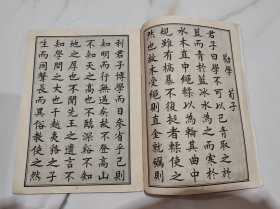 勸學 荀子
君子曰學不可以已青取之於
藍而青於藍冰水為之而寒於
水木直中繩輮以為輪其曲中
規雖有槁暴不復挺者輮使之
然也故木受繩則直金就礪則
利君子博學而日參省乎己則
知明而行無過矣故不登高山
不知天之高也不臨深谿不知
地之厚也不聞先王之遺言不
知學問之大也干越夷貉之子
生而同聲長而異俗教使之然